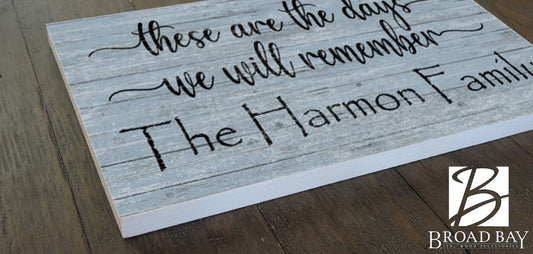 these are the days
we will remember
The Harmon Family
B
BROAD BAY